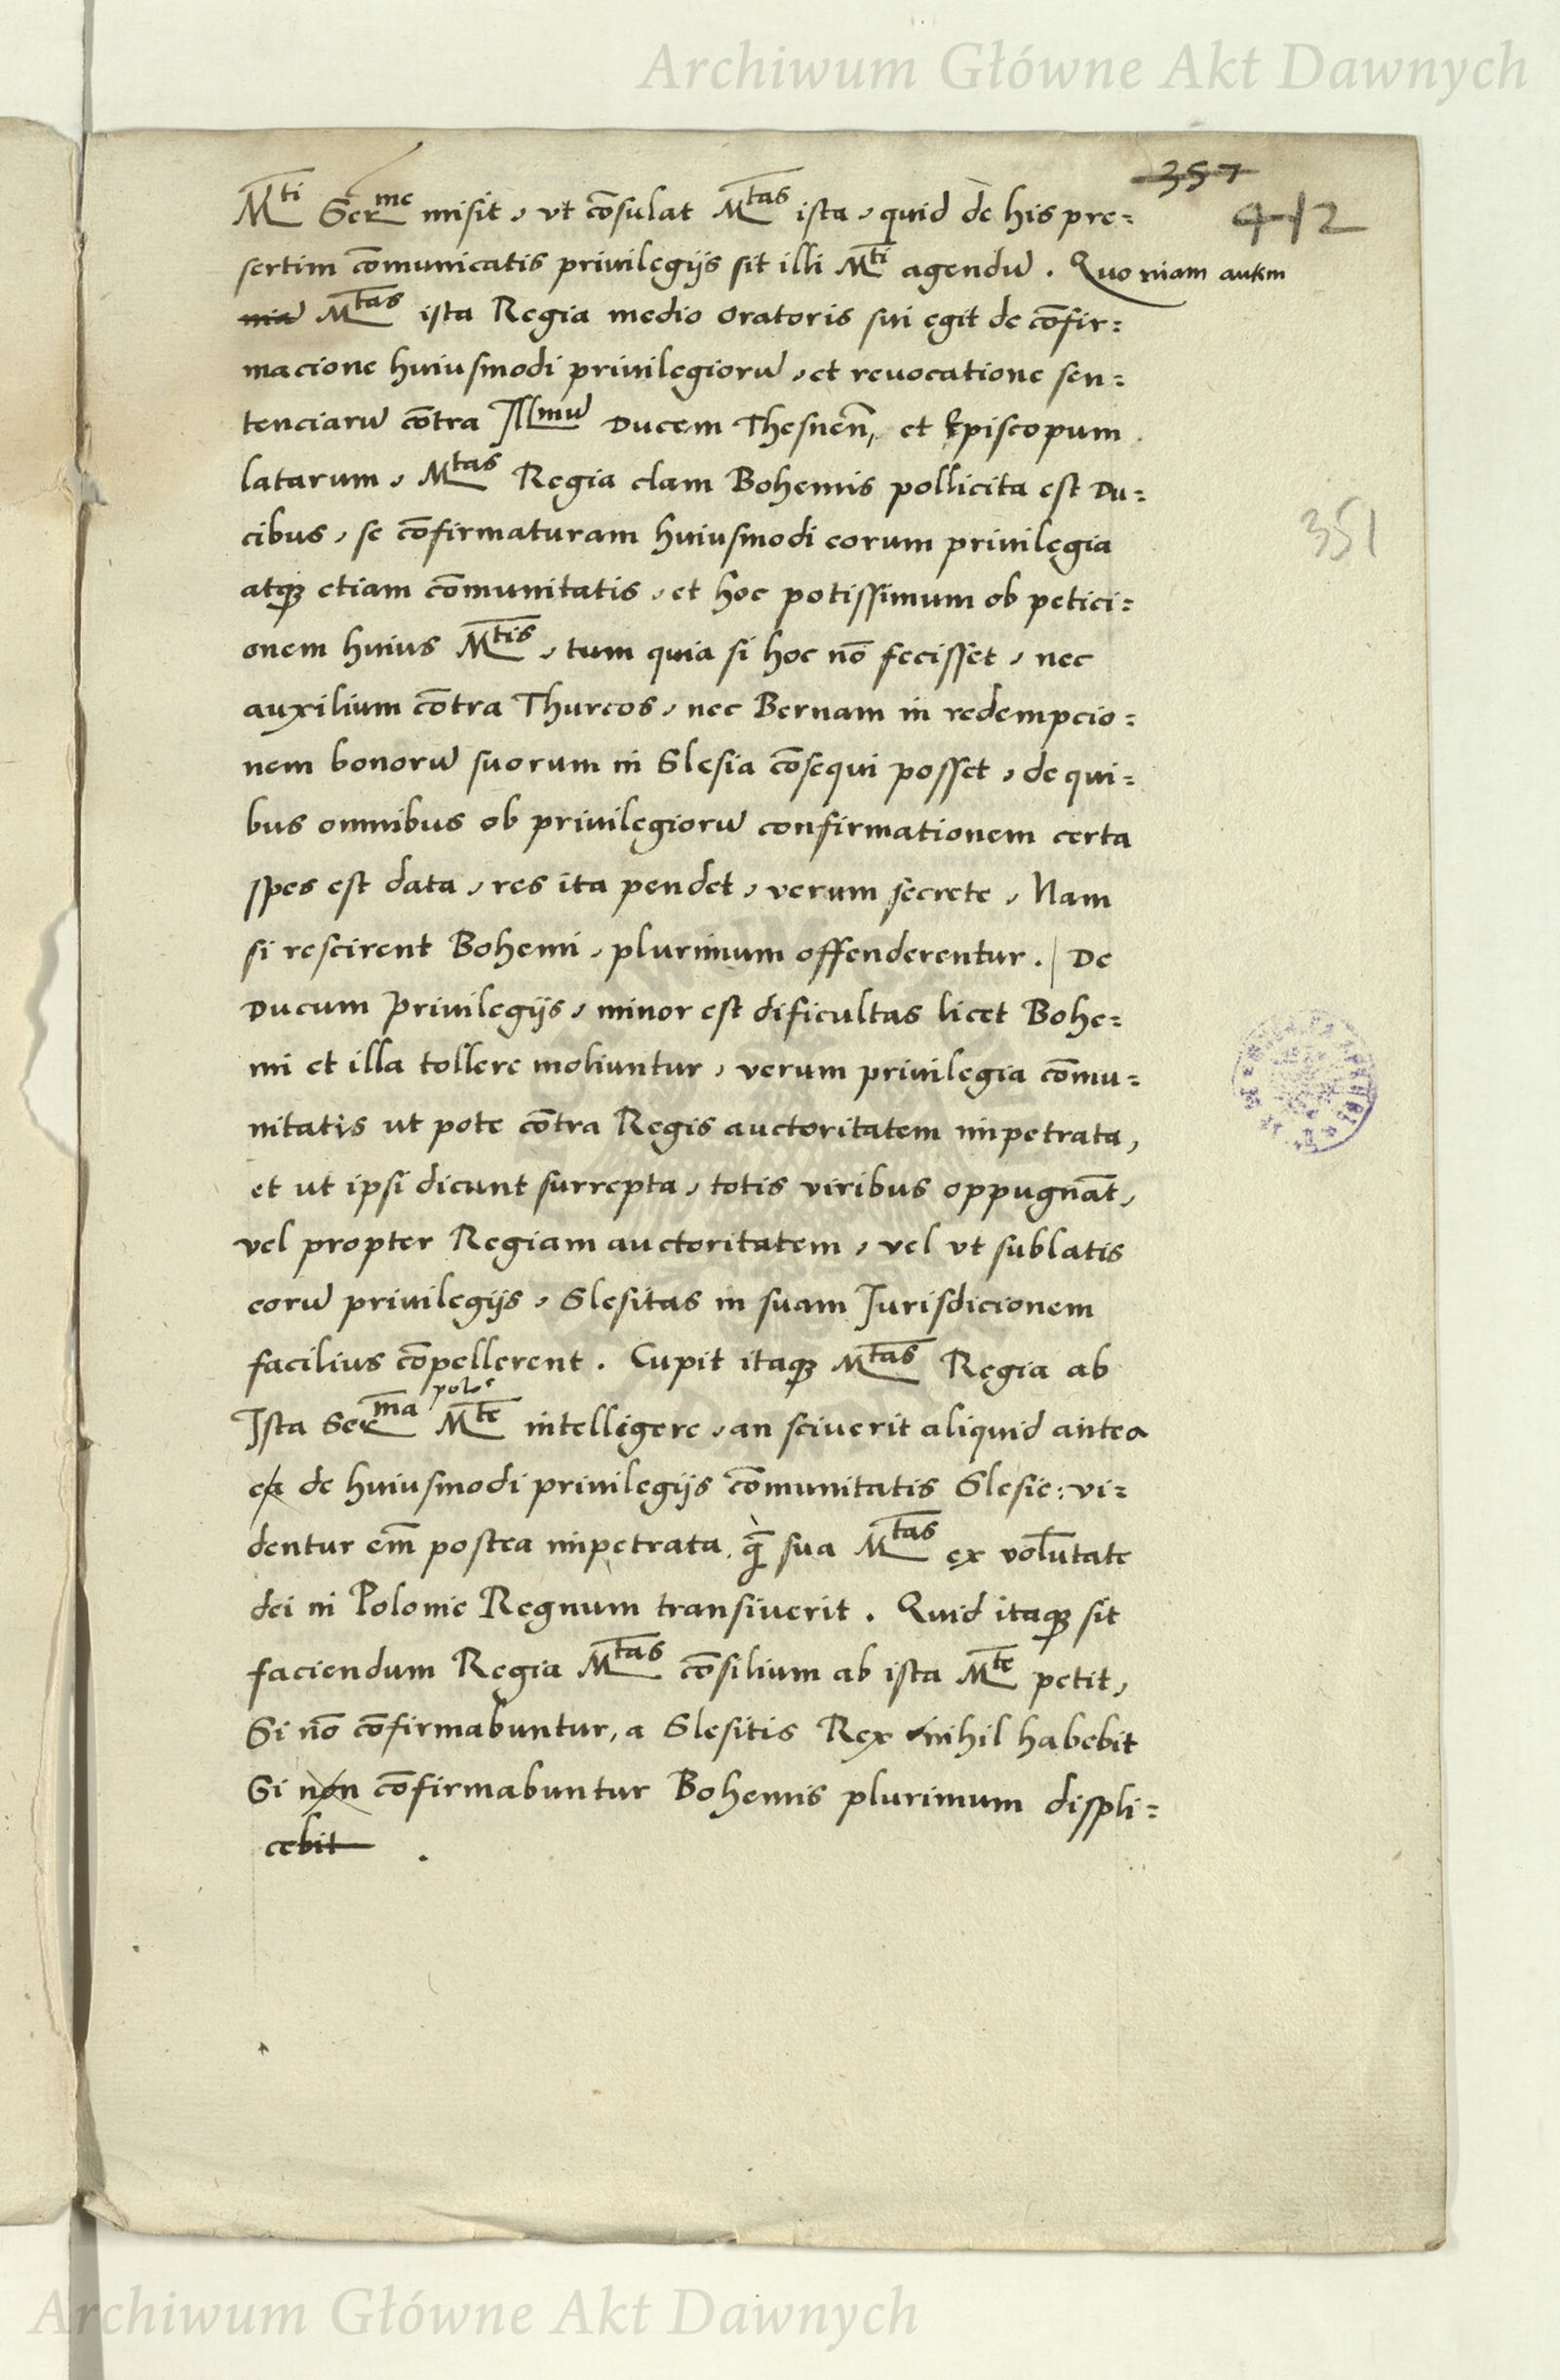 Archiwum Główne Akt Dawnych
357
412
Mti Serme misit, vt cōsulat Mtas ista, quid de his pre=
sertim cōmunicatis priuilegijs sit illi Mti agendū. Quoniam autem
Mtas ista Regia medio oratoris sui egit de cōfir=
macione huiusmodi priuilegiorū, et reuocatione sen=
tenciarū cōtra Illmū Ducem Thesnen̄, et Episcopum
latarum, Mtas Regia clam Bohemis pollicita est Du=
cibus, se cōfirmaturam huiusmodi eorum priuilegia
351
atqꝫ etiam cōmunitatis, et hoc potissimum ob petici=
onem huius Mtis, tum quia si hoc nō fecisset, nec
auxilium cōtra Thurcos, nec Bernam in redempcio=
nem bonorū suorum in Slesia cōsequi posset, de qui=
bus omnibus ob priuilegiorū confirmationem certa
spes est data, res ita pendet, verum secrete, Nam
si rescirent Bohemi, plurimum offenderentur. | De
Ducum Priuilegijs, minor est dificultas licet Bohe=
mi et illa tollere moliuntur, verum priuilegia cōmu=
nitatis ut pote cōtra Regis auctoritatem impetrata,
et ut ipsi dicunt surrepta, totis viribus oppugnāt,
vel propter Regiam auctoritatem, vel vt sublatis
eorū priuilegijs, Slesitas in suam Jurisdicionem
facilius cōpellerent. Cupit itaqꝫ Mtas Regia ab
Ista Serma polo Mte intelligere, an sciuerit aliquid antea
ea de huiusmodi priuilegijs cōmunitatis Slesie: vi=
dentur em̄ postea impetrata, q̄ sua Mtas ex volūtate
dei in Polonie Regnum transiuerit. Quid itaqꝫ sit
faciendum Regia Mtas cōsilium ab ista Mte petit,
Si nō cōfirmabuntur, a Slesitis Rex nihil habebit
Si non cōfirmabuntur Bohemis plurimum displi=
cebit.
Archiwum Główne Akt Dawnych